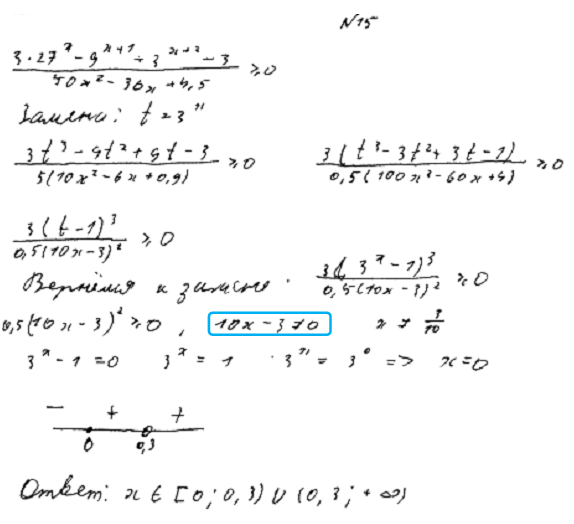 N15
(3·27^x - 9^(x+1) + 3^(x+2) - 3) / (50x² - 30x + 4,5) ≥ 0
Замена: t = 3^x
(3t³ - 9t² + 9t - 3) / (5(10x² - 6x + 0,9)) ≥ 0    3(t³ - 3t² + 3t - 1) / (0,5(100x² - 60x + 9)) ≥ 0
3(t - 1)³ / (0,5(10x - 3)²) ≥ 0
Вернёмся к замене: 3(3^x - 1)³ / (0,5(10x - 3)²) ≥ 0
0,5(10x - 3)² ≥ 0, 10x - 3 ≠ 0    x ≠ 3/10
3^x - 1 = 0    3^x = 1    3^x = 3^0 => x = 0
- + +
0 0,3
Ответ: x ∈ [0; 0,3) ∪ (0,3; +∞)